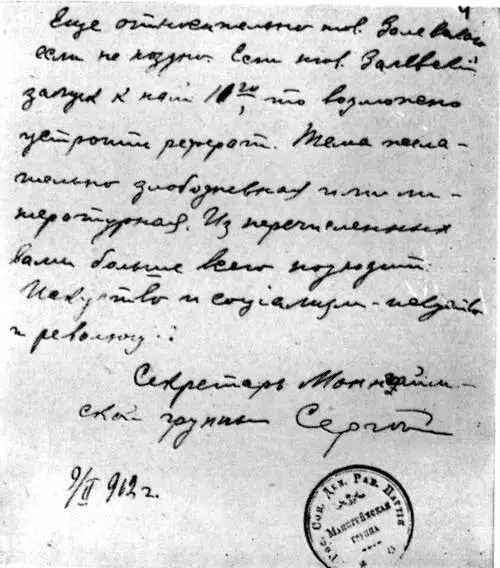 4
Еще относительно тов. Залевского
если не поздно. Если тов. Залевский
к нам 10 20, то возможно
устроить реферат. Тема жела-
тельно злободневная или ли-
тературная. Из перечисленных
Вами больше всего подходит:
Искусство и социализм - искусство
и революц
Секретарь Маннгейм-
ской группы Сергей
9/II 912 г.
Рос. Соц. Дем. Раб. Партія
Мангеймская
группа